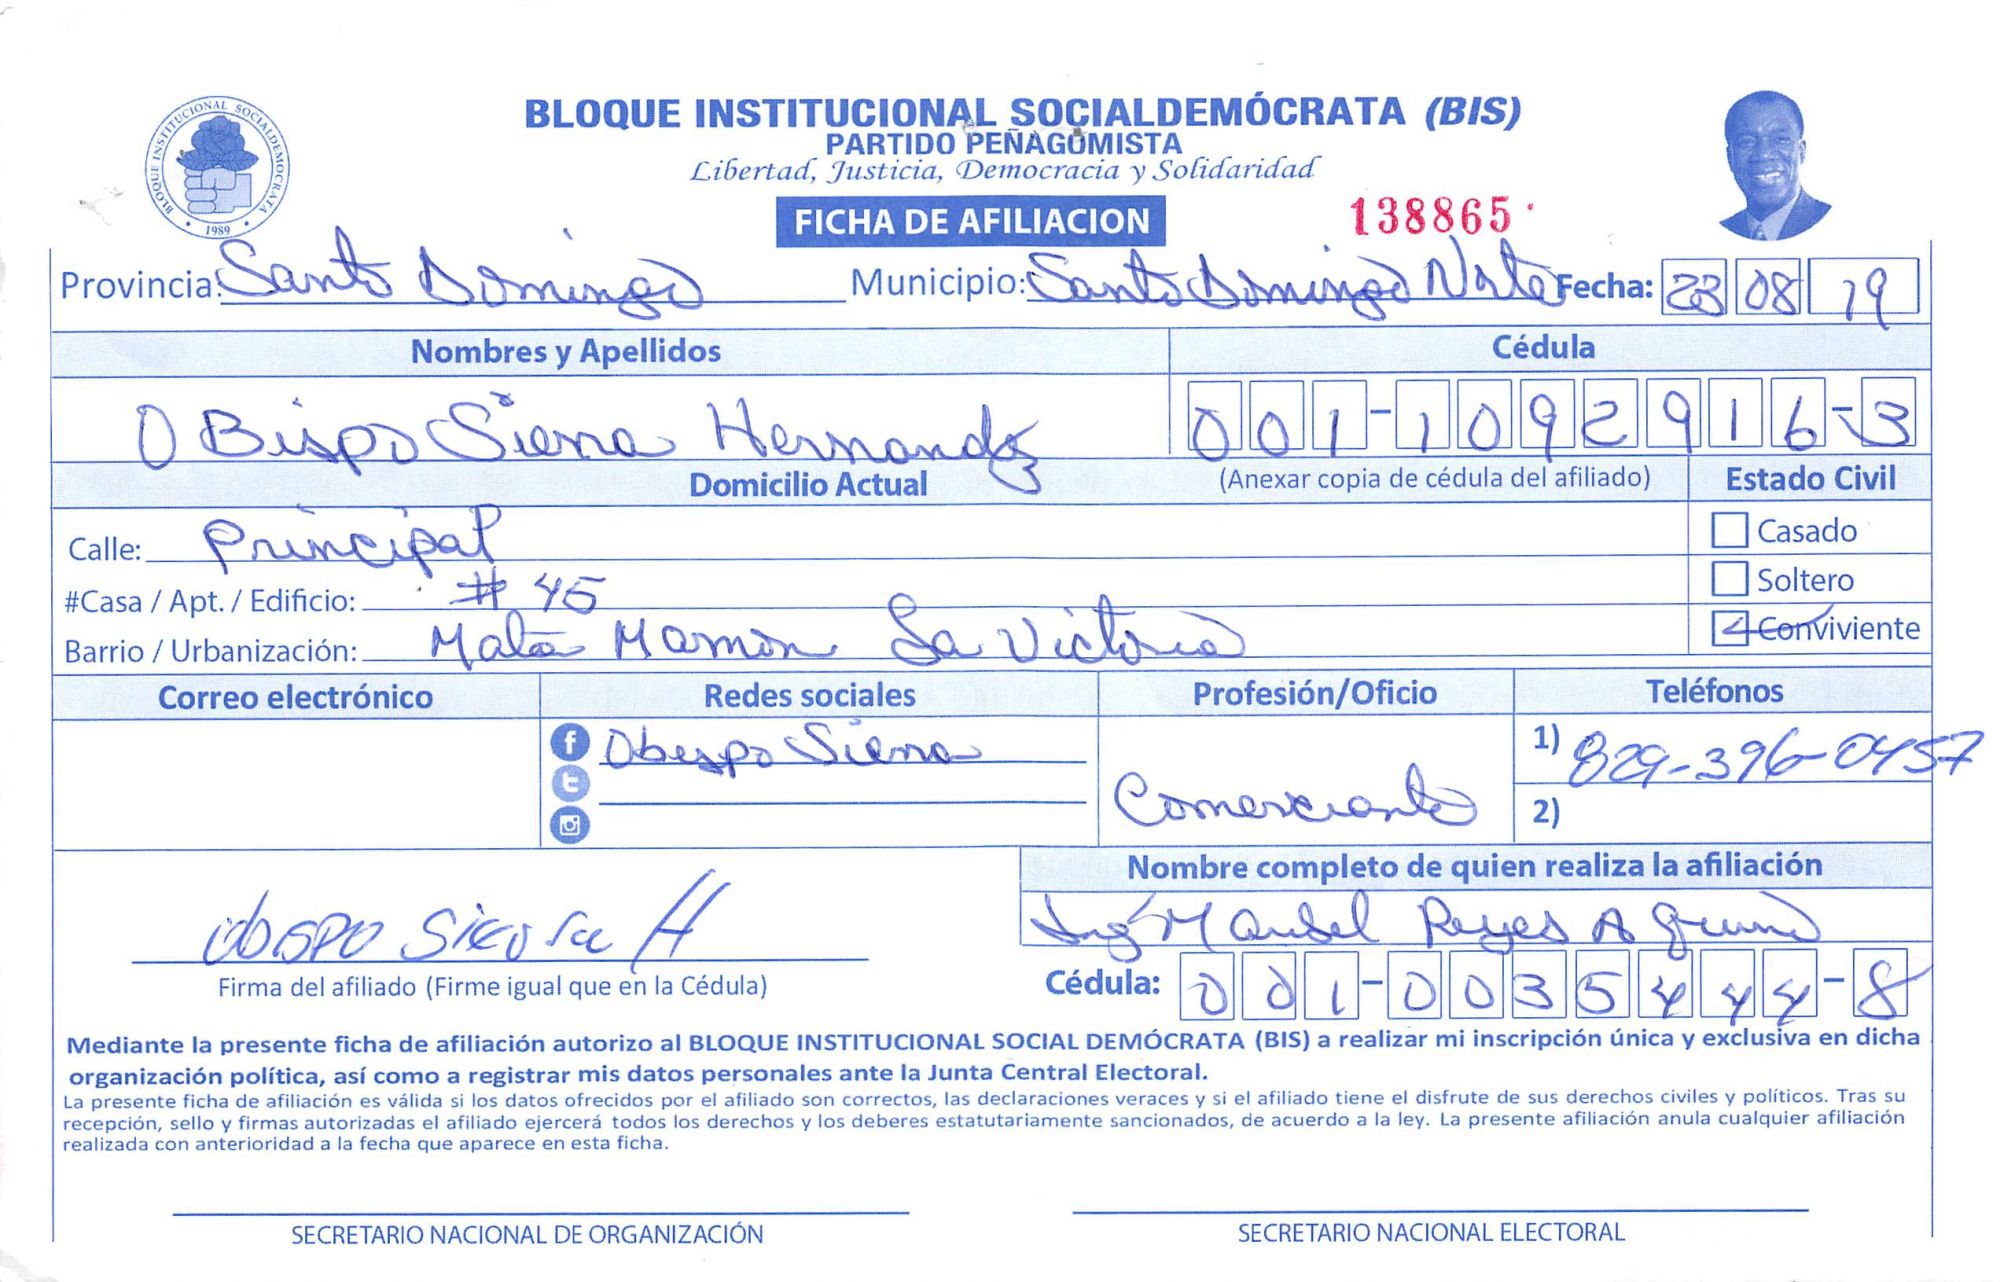 BLOQUE INSTITUCIONAL SOCIALDEMÓCRATA 1989
BLOQUE INSTITUCIONAL SOCIALDEMÓCRATA (BIS)
PARTIDO PEÑAGOMISTA
Libertad, Justicia, Democracia y Solidaridad
FICHA DE AFILIACION 138865
Provincia: Santo Domingo Municipio: Santo Domingo Norte Fecha: 23 08 19
Nombres y Apellidos Cédula
OBispo Sierra Hernandez 001-1092916-3
Domicilio Actual (Anexar copia de cédula del afiliado) Estado Civil
Calle: Principal Casado
#Casa / Apt. / Edificio: # 45 Soltero
Barrio / Urbanización: Mata Mamon La Victoria Conviviente
Correo electrónico Redes sociales Profesión/Oficio Teléfonos
Obispo Sierra Comerciante 1) 829-396-0457
2)
Nombre completo de quien realiza la afiliación
Ing Manuel Reyes Aquino
obispo Sierra H
Firma del afiliado (Firme igual que en la Cédula) Cédula: 001-0035444-8
Mediante la presente ficha de afiliación autorizo al BLOQUE INSTITUCIONAL SOCIAL DEMÓCRATA (BIS) a realizar mi inscripción única y exclusiva en dicha
organización política, así como a registrar mis datos personales ante la Junta Central Electoral.
La presente ficha de afiliación es válida si los datos ofrecidos por el afiliado son correctos, las declaraciones veraces y si el afiliado tiene el disfrute de sus derechos civiles y políticos. Tras su
recepción, sello y firmas autorizadas el afiliado ejercerá todos los derechos y los deberes estatutariamente sancionados, de acuerdo a la ley. La presente afiliación anula cualquier afiliación
realizada con anterioridad a la fecha que aparece en esta ficha.
SECRETARIO NACIONAL DE ORGANIZACIÓN SECRETARIO NACIONAL ELECTORAL